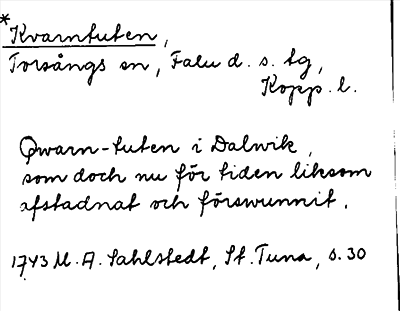 *Kvarntuten,
Torsångs sn, Falu d. s. tg,
Kopp. l.
Qwarn-tuten i Dalwik,
som doch nu för tiden liksom
afstadnat och förswunnit.
1743 M. A. Sahlstedt, St. Tuna, s. 30